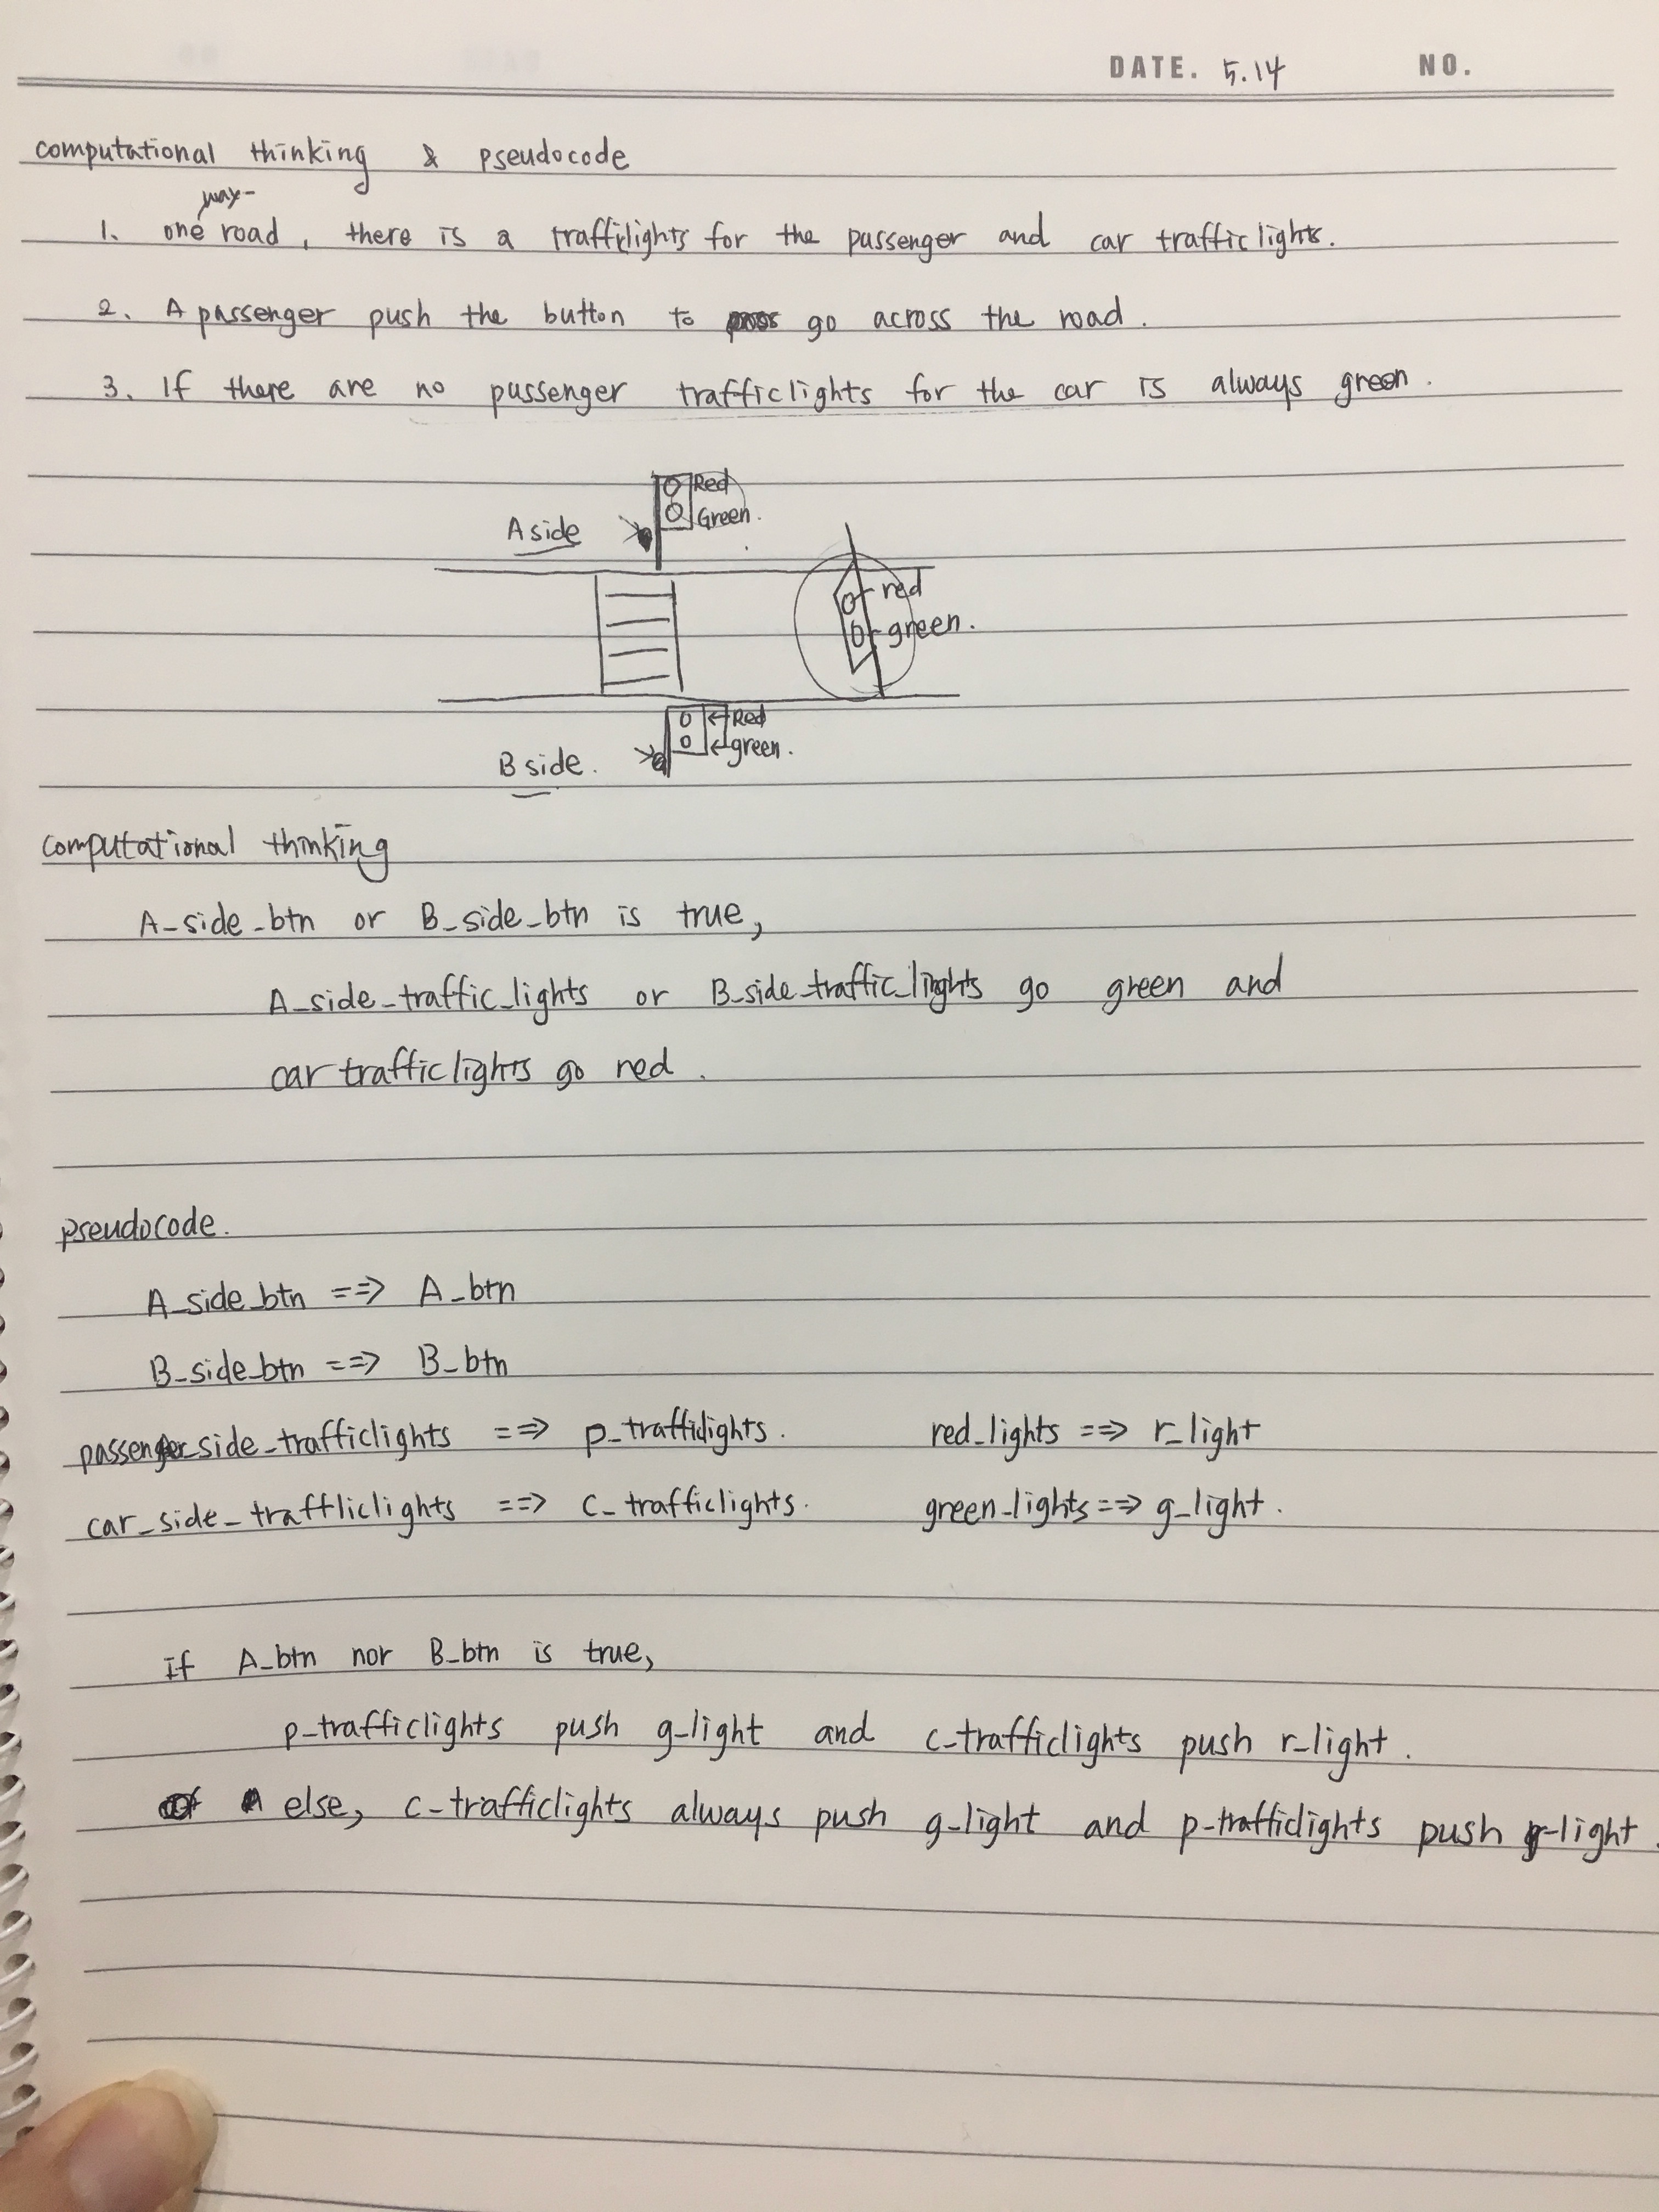 DATE. 5.14 NO.
computational thinking & pseudocode
way-
1. one road, there is a trafficlights for the passenger and car trafficlights.
2. A passenger push the button to go across the road.
3. If there are no passenger trafficlights for the car is always green.
Red
A side Green.
red
green.
Red
green.
B side.
computational thinking
A_side_btn or B_side_btn is true,
A_side_traffic_lights or B_side_traffic_lights go green and
car trafficlights go red.
pseudocode.
A_side_btn ==> A_btn
B_side_btn ==> B_btn
passenger_side_trafficlights ==> p_trafficlights. red_lights ==> r_light
car_side_traffliclights ==> c_trafficlights. green_lights ==> g_light.
If A_btn nor B_btn is true,
p-trafficlights push g_light and c-trafficlights push r_light.
else, c-trafficlights always push g_light and p-trafficlights push r-light.